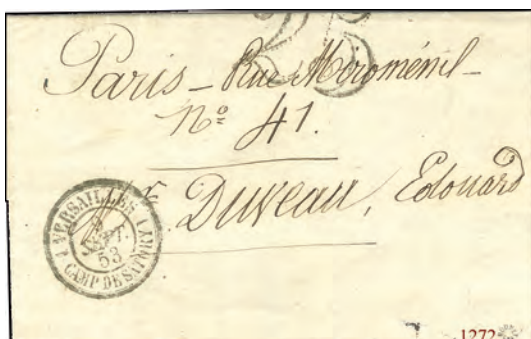 25
Paris - Rue Miroménil -
Nº 41.
Duveau, Edouard
VERSAILLES
SEPT.
53
CAMP DE SATORY
1272